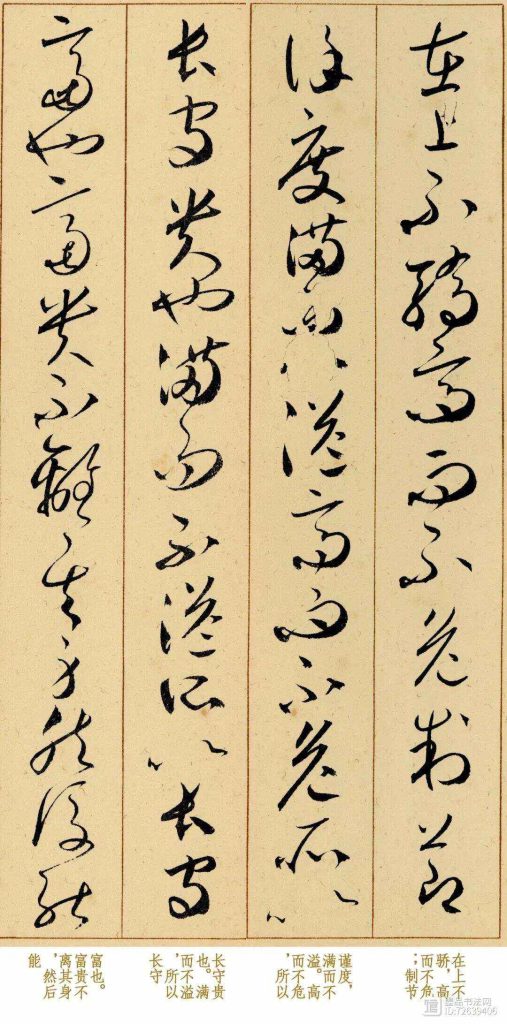 在上不驕高而不危制節
謹度滿而不溢高而不危所以
長守貴也滿而不溢所以長守
富也富貴不離其身然後能
在上不
骄,高
而不危
;制节
谨度,
满而不
溢。高
而不危
,所以
长守贵
也。满
而不溢
,所以
长守
富也。
富贵不
离其身
,然后
能
书法网
ID:72639406